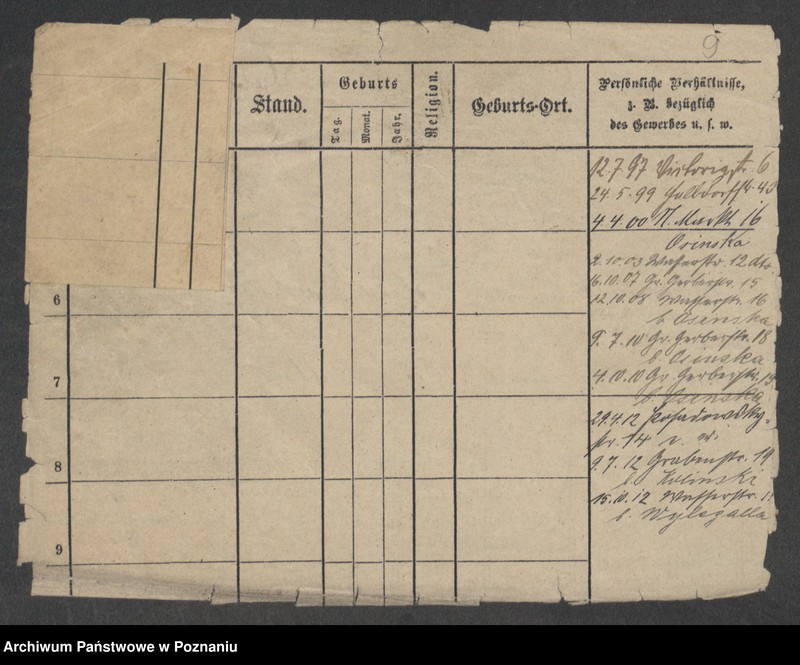 9
Stand.
Geburts
Tag.
Monat.
Jahr.
Religion.
Geburts-Ort.
Persönliche Verhältnisse,
z. B. bezüglich
des Gewerbes u. s. w.
12.7.97 Victoriastr. 6
24.5.99 43
4.4.00 N. Markt 16
Osinska
2.10.03 Wasserstr. 12 dto
16.10.07 Gr. Gerberstr. 15
12.10.08 Wasserstr. 16
b. Osinska
9.7.10 Gr. Gerberstr. 18
b. Osinska
4.10.10 Gr. Gerberstr. 19
b. Osinska
29.4.12 Posadowsky-
str. 14 v. w.
9.7.12 Grabenstr. 19
b.
15.10.12 Wasserstr. 11
b. Wylegalla
6
7
8
9
Archiwum Państwowe w Poznaniu